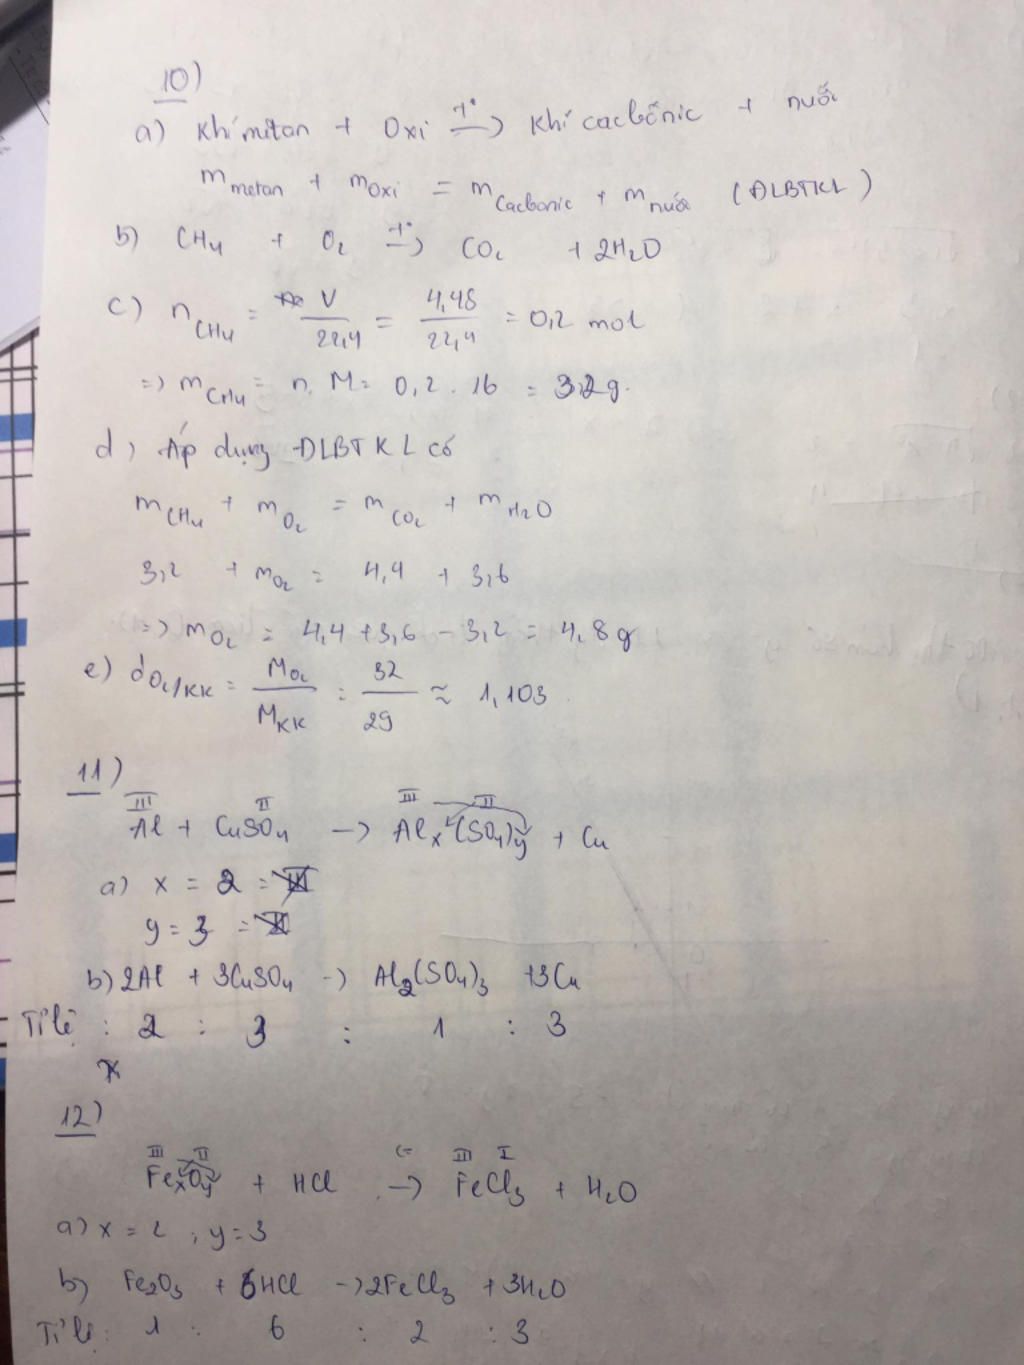 10)
a) Khí mêtan + Oxi t°→ Khí cacbônic + nước
m metan + m Oxi = m Cacbonic + m nước (ĐLBTKL)
b) CH4 + O2 t°→ CO2 + 2H2O
c) nCH4 = V/22,4 = 4,48/22,4 = 0,2 mol
=> mCH4 = n. M = 0,2 . 16 = 3,2g.
d) Áp dụng ĐLBTKL có
mCH4 + mO2 = mCO2 + mH2O
3,2 + mO2 = 4,4 + 3,6
=> mO2 = 4,4 + 3,6 - 3,2 = 4,8g
e) dO2/KK = MO2/MKK = 32/29 ≈ 1,103
11)
III II III II
Al + CuSO4 -> Alx(SO4)y + Cu
a) x = 2
y = 3
b) 2Al + 3CuSO4 -> Al2(SO4)3 + 3Cu
Tỉ lệ : 2 : 3 : 1 : 3
12)
III II III I
FexOy + HCl -> FeCl3 + H2O
a) x = 2 ; y = 3
b) Fe2O3 + 6HCl -> 2FeCl3 + 3H2O
Tỉ lệ : 1 : 6 : 2 : 3